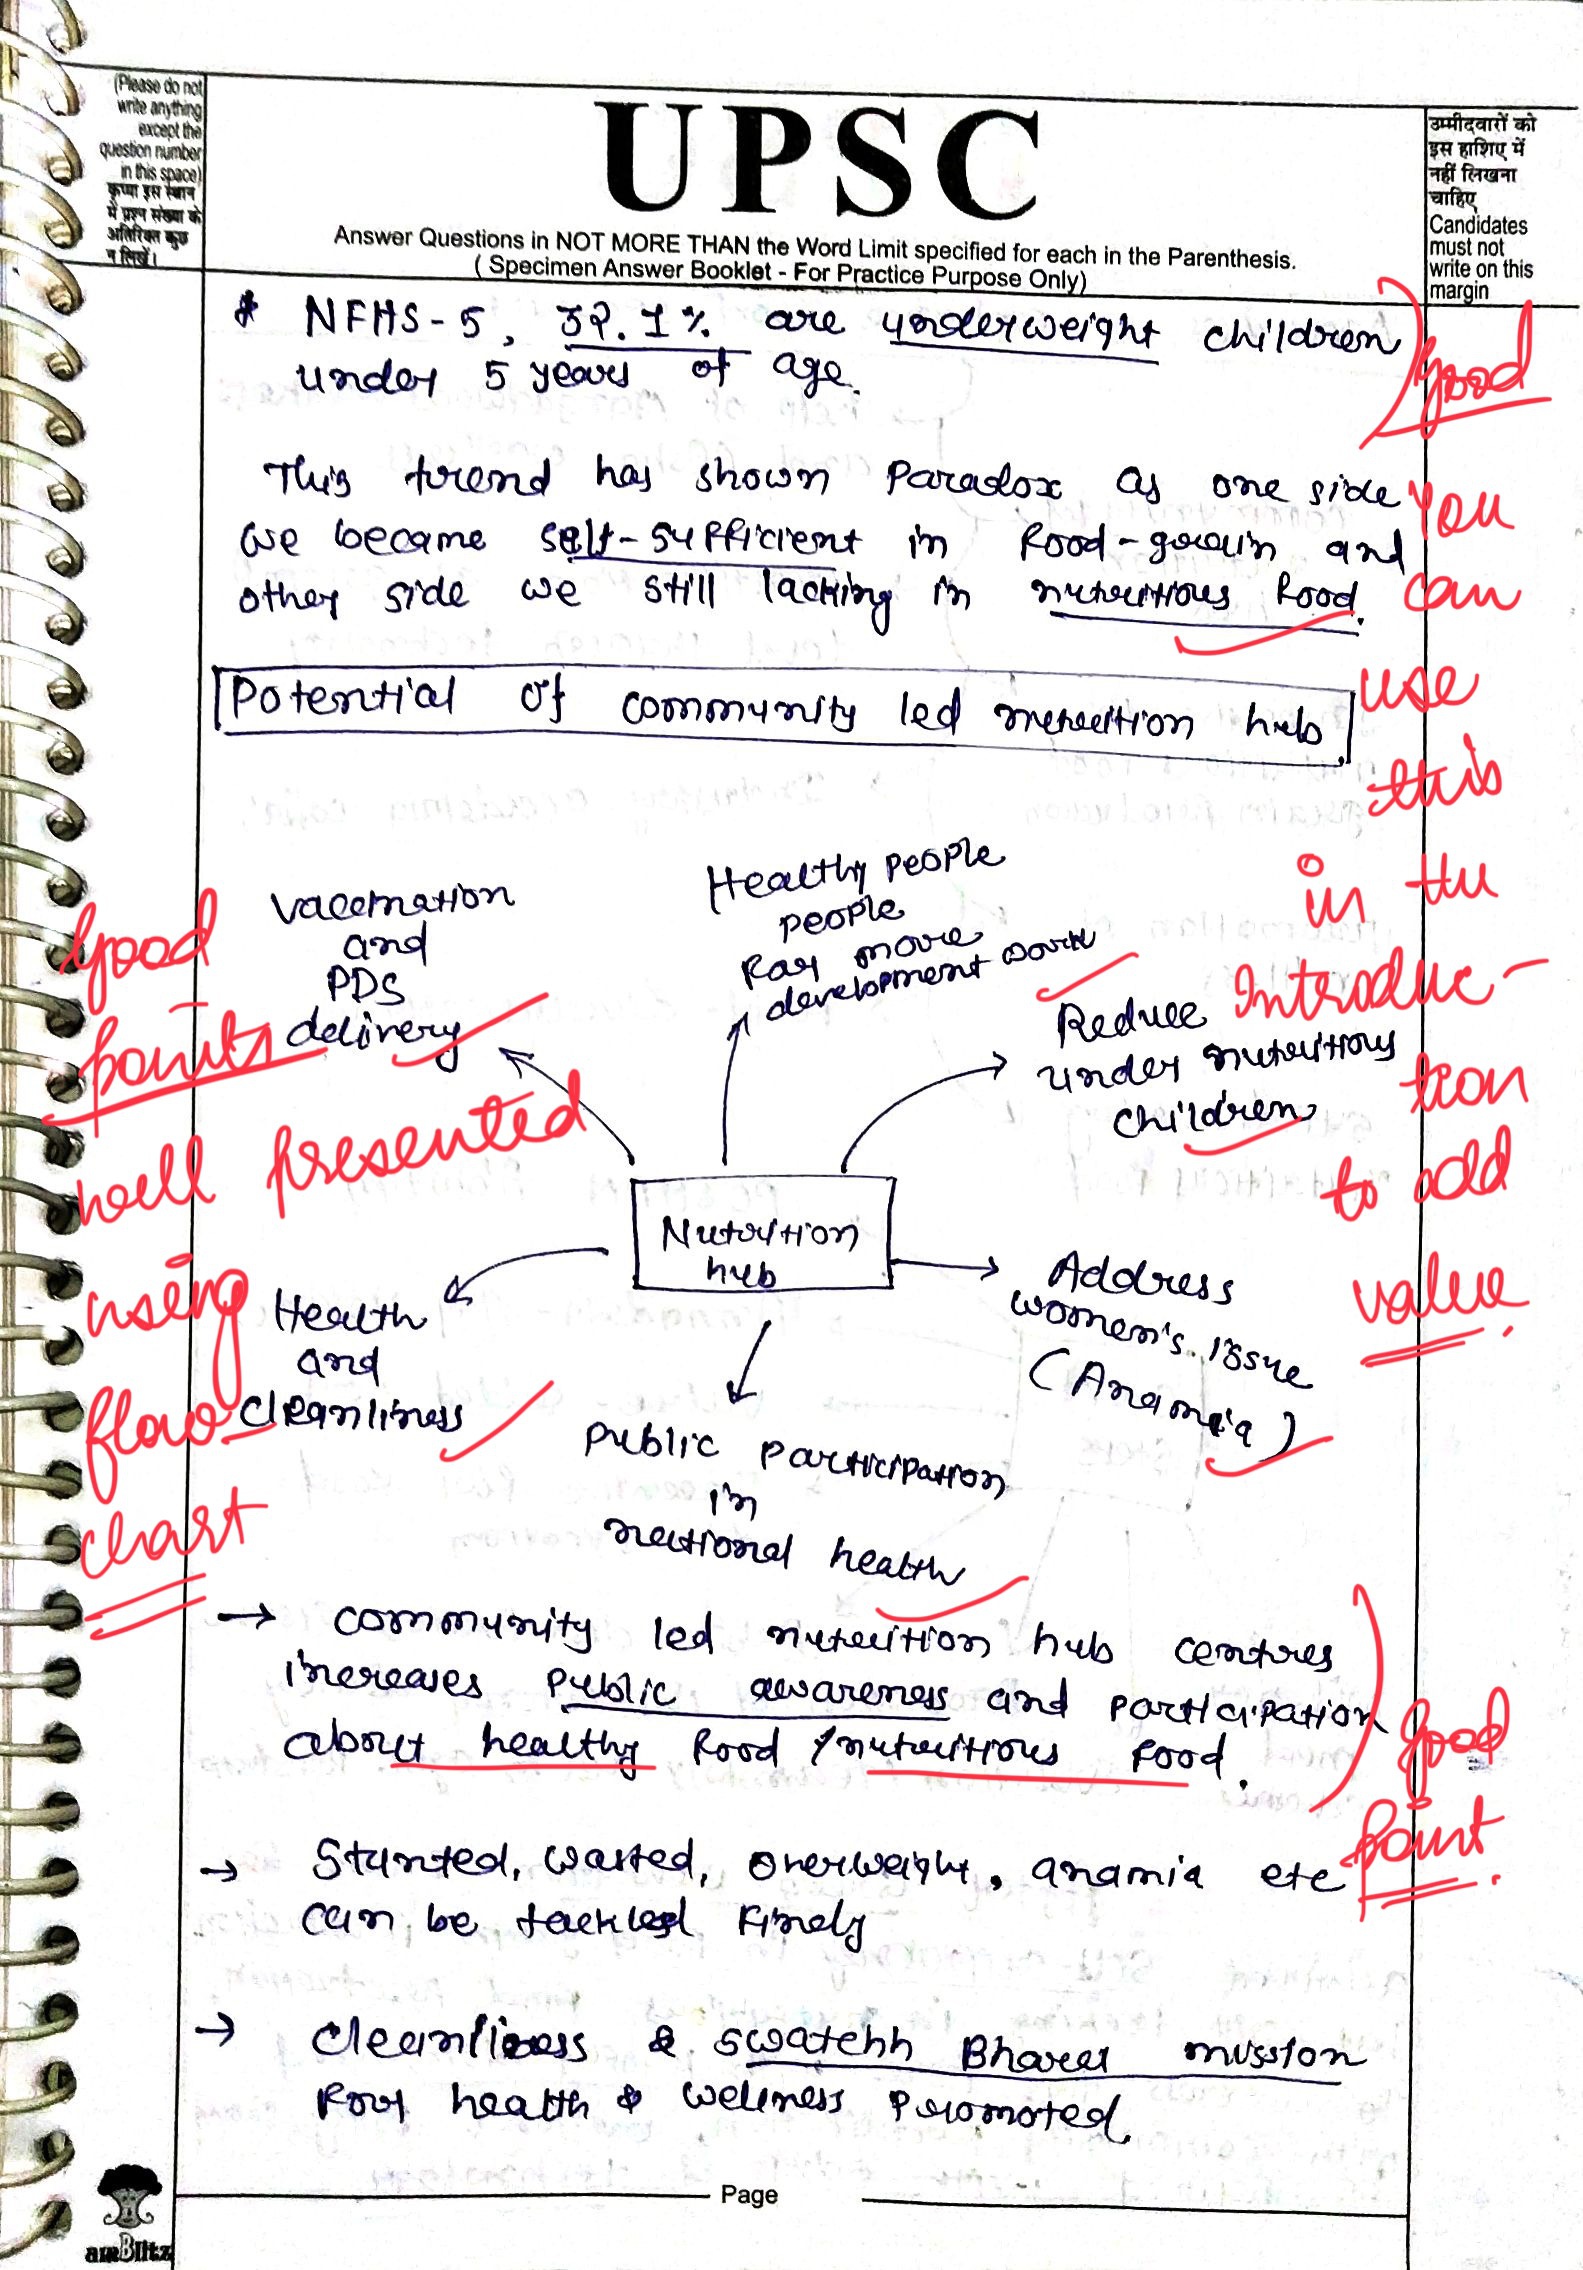 (Please do not
write anything
except the
question number
in this space)
कृप्या इस स्थान
में प्रश्न संख्या के
अतिरिक्त कुछ
न लिखें।
UPSC
Answer Questions in NOT MORE THAN the Word Limit specified for each in the Parenthesis.
( Specimen Answer Booklet - For Practice Purpose Only)
उम्मीदवारों को
इस हाशिए में
नहीं लिखना
चाहिए
Candidates
must not
write on this
margin
* NFHS-5, 32.1% are underweight children
under 5 years of age.
This trend has shown Paradox as one side
we became self-sufficient in food-grain and
other side we still lacking in nutritious food.
Good
You
can
use
this
in the
Introduc-
tion
to add
value.
Potential of community led nutrition hub.
Vaccination
and
PDS
delivery
Healthy people
people
for more
development work
Reduce
under nutritious
children
Nutrition
hub
Address
women's issue
(Anamia)
Public Participation
in
national health
Health
and
cleanliness
Good
points
well presented
using
flow
chart
→ Community led nutrition hub centres
increases public awareness and participation
about healthy food / nutritious food.
Good
point.
→ Stunted, wasted, overweight, anamia etc
can be tackled finely
→ Cleanliness & Swatchh Bharat mission
for health & wellness promoted.
Page
amBlitz